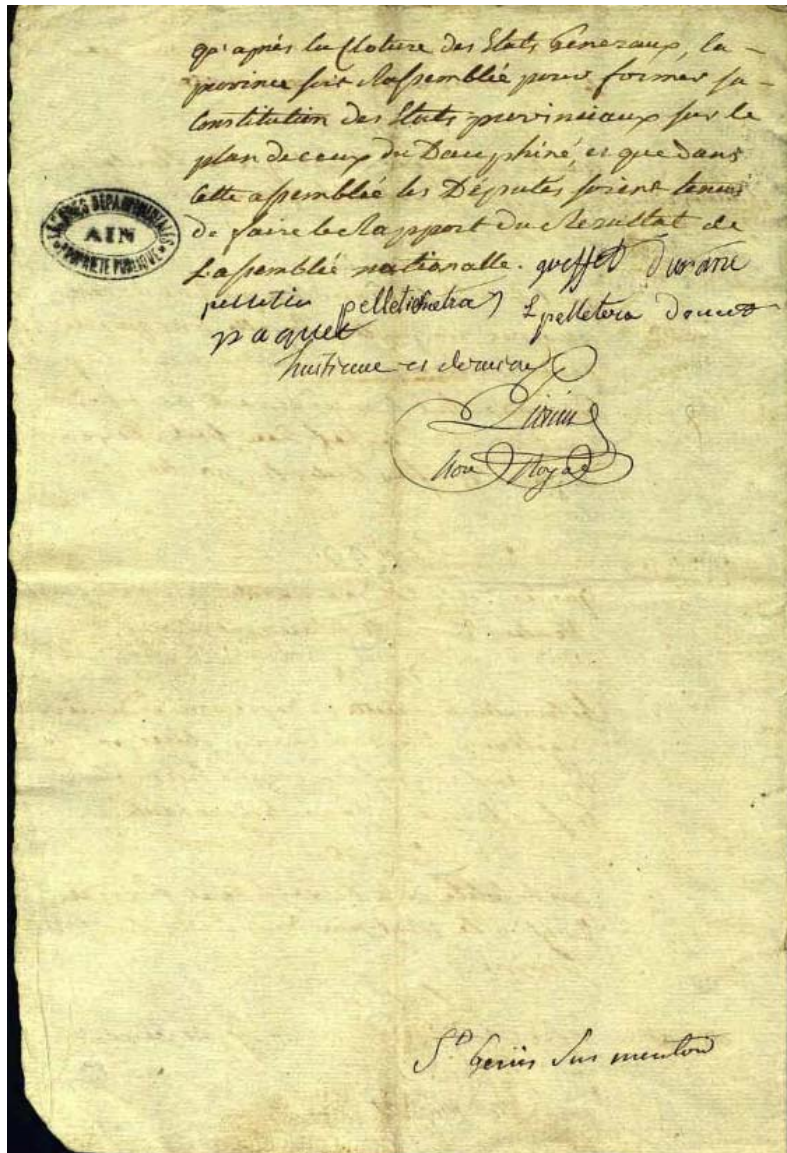 qu'après la Cloture des Etats Generaux, la
province soit Rassemblée pour former sa
Constitution des Etats provinciaux sur le
plan de ceux du Dauphiné, et que dans
Cette assemblée les Députés soient tenus
de faire le Rapport du Resultat de
L'assemblée nationalle. durand
pelletier
paquet
Nore Royal
ARCHIVES DÉPARTEMENTALES
AIN
PROPRIETE PUBLIQUE
St Genis sur menton